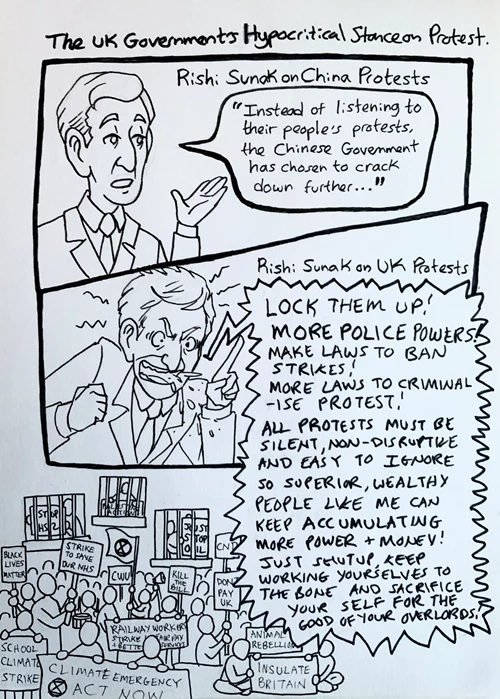 The UK Government's Hypocritical Stance on Protest.
Rishi Sunak on China Protests
"Instead of listening to
their people's protests,
the Chinese Government
has chosen to crack
down further..."
Rishi Sunak on UK Protests
LOCK THEM UP!
MORE POLICE POWERS!
MAKE LAWS TO BAN
STRIKES!
MORE LAWS TO CRIMINAL
-ISE PROTEST!
ALL PROTESTS MUST BE
SILENT, NON-DISRUPTIVE
AND EASY TO IGNORE
SO SUPERIOR, WEALTHY
PEOPLE LIKE ME CAN
KEEP ACCUMULATING
MORE POWER + MONEY!
JUST SHUTUP, KEEP
WORKING YOURSELVES TO
THE BONE AND SACRIFICE
YOUR SELF FOR THE
GOOD OF YOUR OVERLORDS!
STOP
HS2
JUST
STOP
OIL
BLACK
LIVES
MATTER
STRIKE
TO SAVE
OUR NHS
CWU
KILL
THE
BILL
CN
DON
PAY
UK
RAILWAY WORKERS
STRIKE
FAIR PAY
SCHOOL
CLIMATE
STRIKE
CLIMATE EMERGENCY
ACT NOW
ANIMAL
REBELLION
INSULATE
BRITAIN